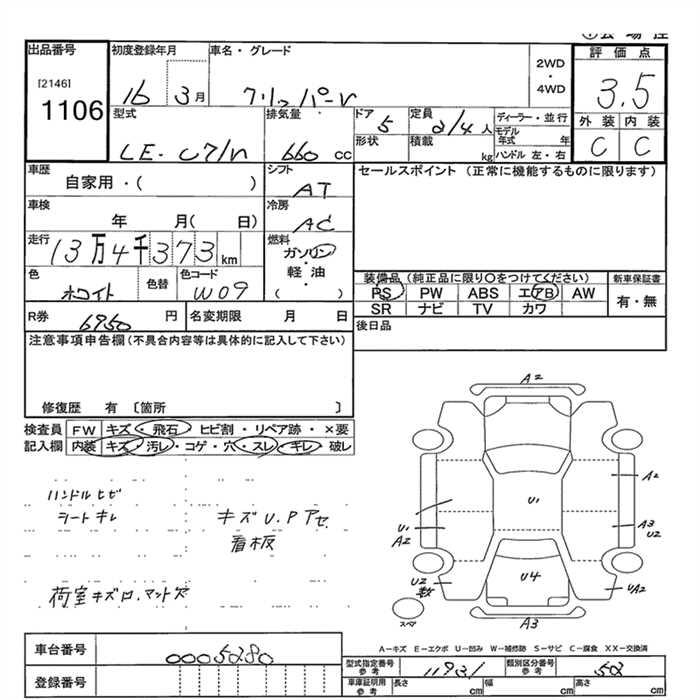 出品番号
[2146]
1106
初度登録年月
16 3月
車名・グレード
クリッパーV
2WD
・
4WD
評価点
3.5
型式
LE-U71V
排気量
660 cc
ドア
5
形状
定員
2/4人
積載
kg
ディーラー・並行
モデル年式 年
ハンドル 左・右
外装 内装
C C
車歴
自家用・( )
シフト
AT
セールスポイント(正常に機能するものに限ります)
車検
年 月( 日)
冷房
AC
走行
13万4千373km
燃料
ガソリン
・
軽油
( )
色
ホワイト
色替
色コード
W09
装備品(純正品に限り〇をつけてください)
PS PW ABS エアB AW
SR ナビ TV カワ
新車保証書
有・無
R券
6950 円
名変期限 月 日
後日品
注意事項申告欄(不具合内容等は具体的に記入して下さい)
修復歴 有〔箇所 〕
検査員 FW キズ・飛石・ヒビ割・リペア跡・×要
記入欄 内装 キズ・汚レ・コゲ・穴・スレ・キレ・破レ
ハンドルヒビ
シートキレ
キズU.Pアセ
看板
荷室キズ
A2
A2
U1
U1
A2
A3
U2
U2
数
U4
UA2
スペア
A3
A-キズ E-エクボ U-凹み W-補修跡 S-サビ C-腐食 XX-交換済
車台番号
0005280
登録番号
型式指定番号
参考
11931
類別区分番号
参考
52
車庫証明用
参考
長さ cm
幅 cm
高さ cm